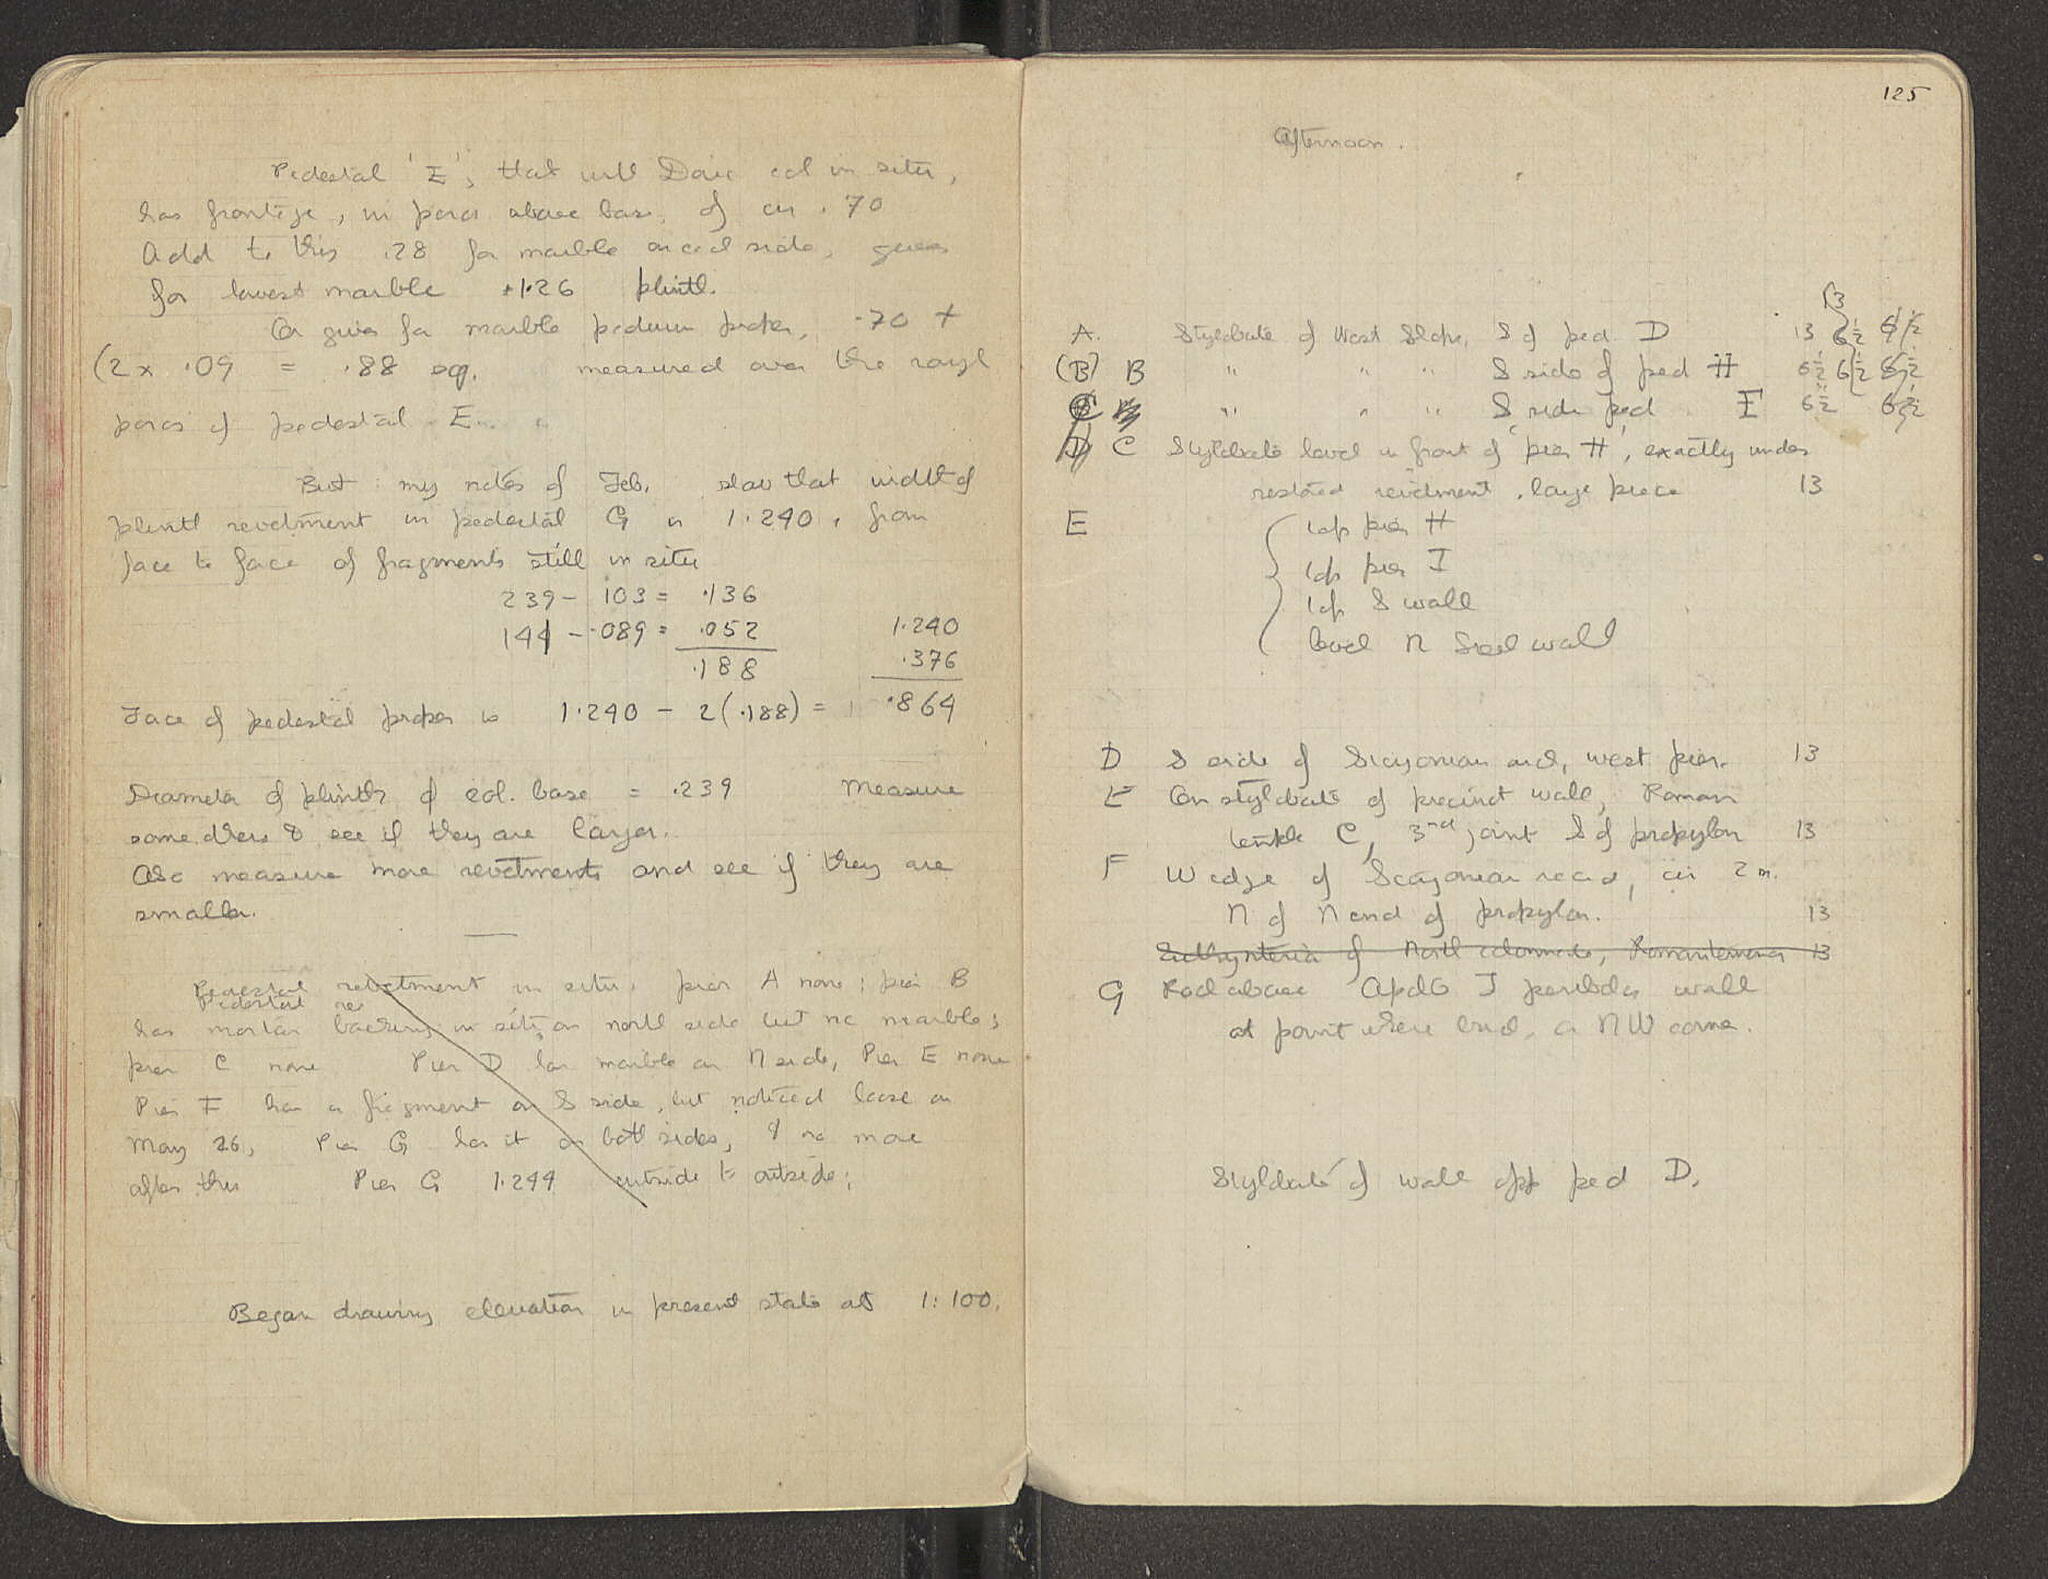 Pedestal 'E', that with Doric col in situ,
has frontage, in poros above base, of ca .70
Add to this .28 for marble on each side, gives
for lowest marble 1.26 plinth.
Or gives for marble podium proper, .70 +
(2 x .09 = .88 sq. measured over the rough
poros of pedestal E.
But my notes of Feb. show that width of
plinth revetment in pedestal G is 1.240, from
face to face of fragments still in situ
239 - 103 = .136
141 - .089 = .052 1.240
.188 .376
Face of pedestal proper is 1.240 - 2(.188) = .864
Diameter of plinths of col. base = .239 Measure
some others & see if they are larger.
Also measure more revetments and see if they are
smaller.
Pedestal revetment in situ. pier A none; pier B
Pedestal re
has mortar backing in situ on north side but no marble;
pier C none Pier D has marble on N side, Pier E none
Pier F has a fragment on S side, but noticed loose on
May 26, Pier G has it on both sides, & no more
after this Pier G 1.244 outside to outside;
Began drawing elevation in present state at 1:100.
125
Afternoon.
13
A. Stylobate of West Slope, S of ped D 13 6½ 6½
(B) B " " " S side of ped H 6½ 6½ 6½
C " " " S side ped I 6½ 6½
D C Stylobate level in front of 'pier H', exactly under
restored revetment, large piece 13
E top pier H
top pier I
top S wall
level N Steel wall
D S side of Sicyonian arch, west pier. 13
E On stylobate of precinct wall, Roman
temple C, 3rd joint S of propylon 13
F W edge of Sicyonian road, ca 2 m.
N of N end of propylon. 13
Euthynteria of North colonnade, Roman temenos 13
G Rock above Apollo I peribolos wall
at point where ends, a NW corner.
Stylobate of wall opp ped D.